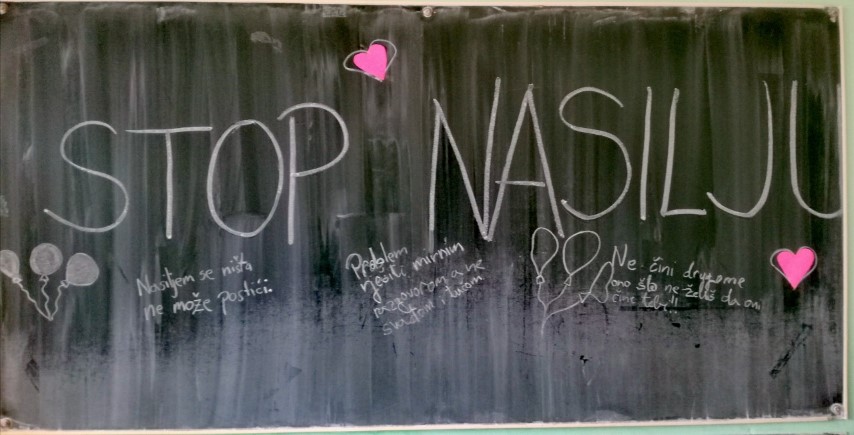 STOP NASILJU
Nasiljem se ništa
ne može postići.
Problem
riješi mirnim
razgovorom a ne
svađom i tučom
Ne čini drugome
ono što ne želiš da oni
čine tebi!!